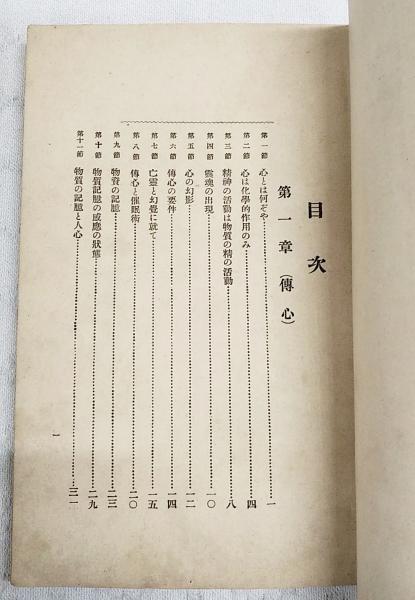 目次
第一章（傳心）
第一節 心とは何ぞや…………一
第二節 心は化學的作用のみ…………四
第三節 精神の活動は物質の精の活動…………八
第四節 靈魂の出現…………一〇
第五節 心の幻影…………一二
第六節 傳心の要件…………一四
第七節 亡靈と幻覺に就て…………一五
第八節 傳心と催眠術…………二〇
第九節 物質の記臆…………二三
第十節 物質記臆の感應の狀態…………二九
第十一節 物質の記臆と人心…………三一
一